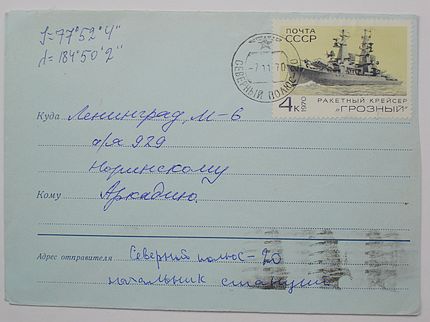 J=77°52'4"
λ=184°50'2"
ПОЧТА
СССР
СЕВЕРНЫЙ ПОЛЮС-20
-7.11.70
4к
1970
РАКЕТНЫЙ КРЕЙСЕР
"ГРОЗНЫЙ"
Куда Ленинград, М-6
а/я 929
Норинскому
Кому Аркадию
Адрес отправителя Северный полюс-20
начальник станции